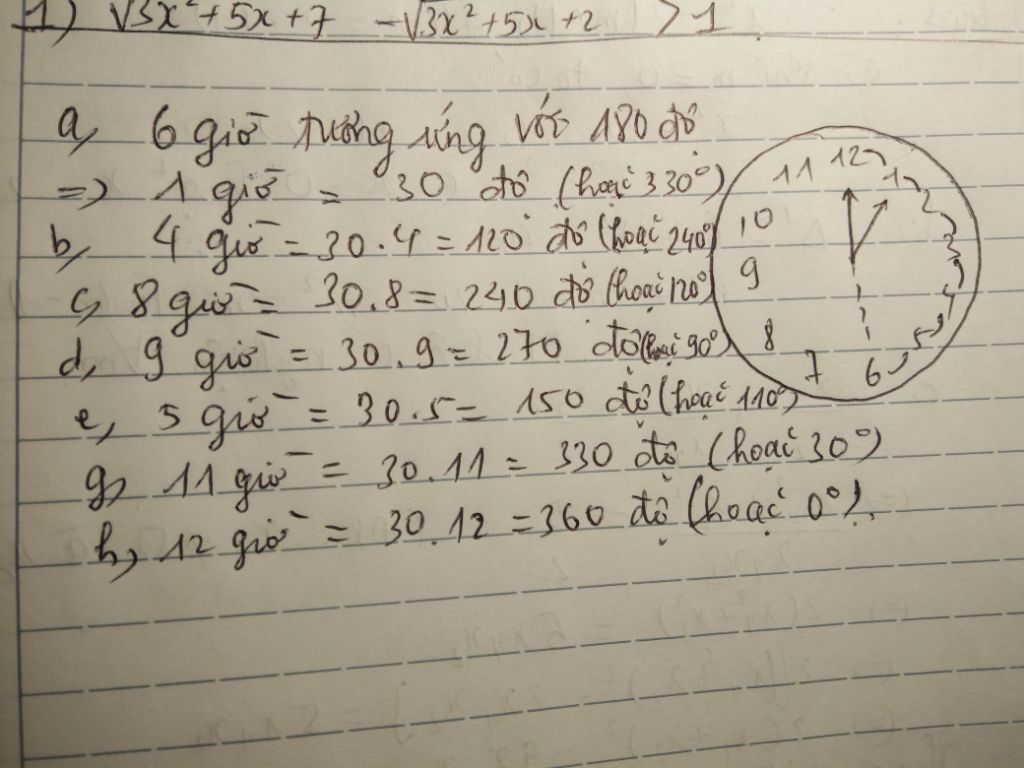 1) √3x²+5x+7 -√3x²+5x+2 > 1
a, 6 giờ tương ứng với 180 độ
=> 1 giờ = 30 độ (hoặc 330°)
b, 4 giờ = 30.4 = 120 độ (hoặc 240°)
c, 8 giờ = 30.8 = 240 độ (hoặc 120°)
d, 9 giờ = 30.9 = 270 độ (hoặc 90°)
e, 5 giờ = 30.5 = 150 độ (hoặc 110°)
g, 11 giờ = 30.11 = 330 độ (hoặc 30°)
h, 12 giờ = 30.12 = 360 độ (hoặc 0°).
12
1
2
3
4
5
6
7
8
9
10
11